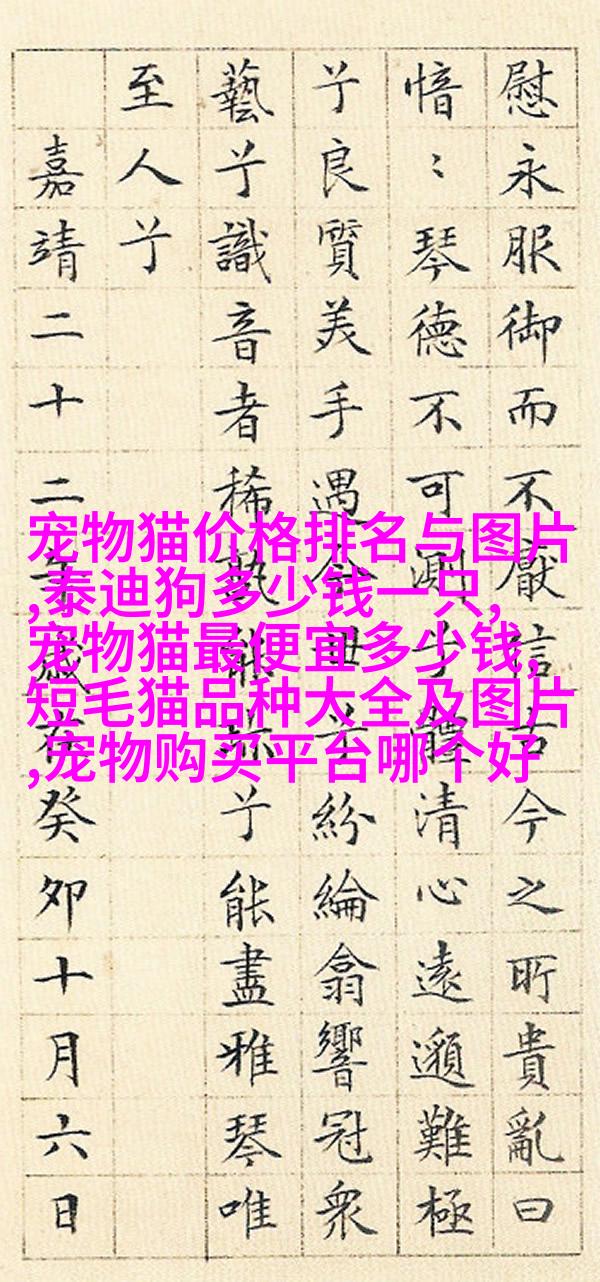 慰永服御而不厭信古今之所貴亂曰
愔〻琴德不可測兮體清心遠邈難極
兮良質美手遇今世兮紛綸翕響冠衆
藝兮識音者稀孰能珎兮能盡雅琴唯
至人兮
嘉靖二十二年歲在癸卯十月六日
宠物猫价格排名与图片
,泰迪狗多少钱一只,
宠物猫最便宜多少钱,
短毛猫品种大全及图片
,宠物购买平台哪个好